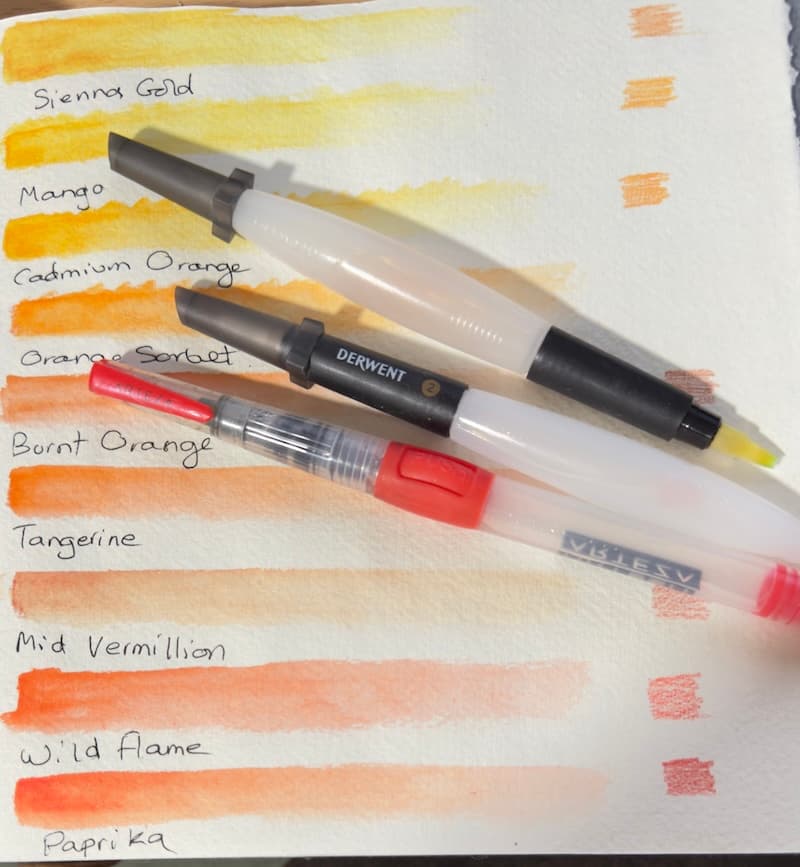 Sienna Gold
Mango
Cadmium Orange
Orange Sorbet
DERWENT 2
Burnt Orange
Tangerine
ARTEZA
Mid Vermillion
Wild flame
Paprika